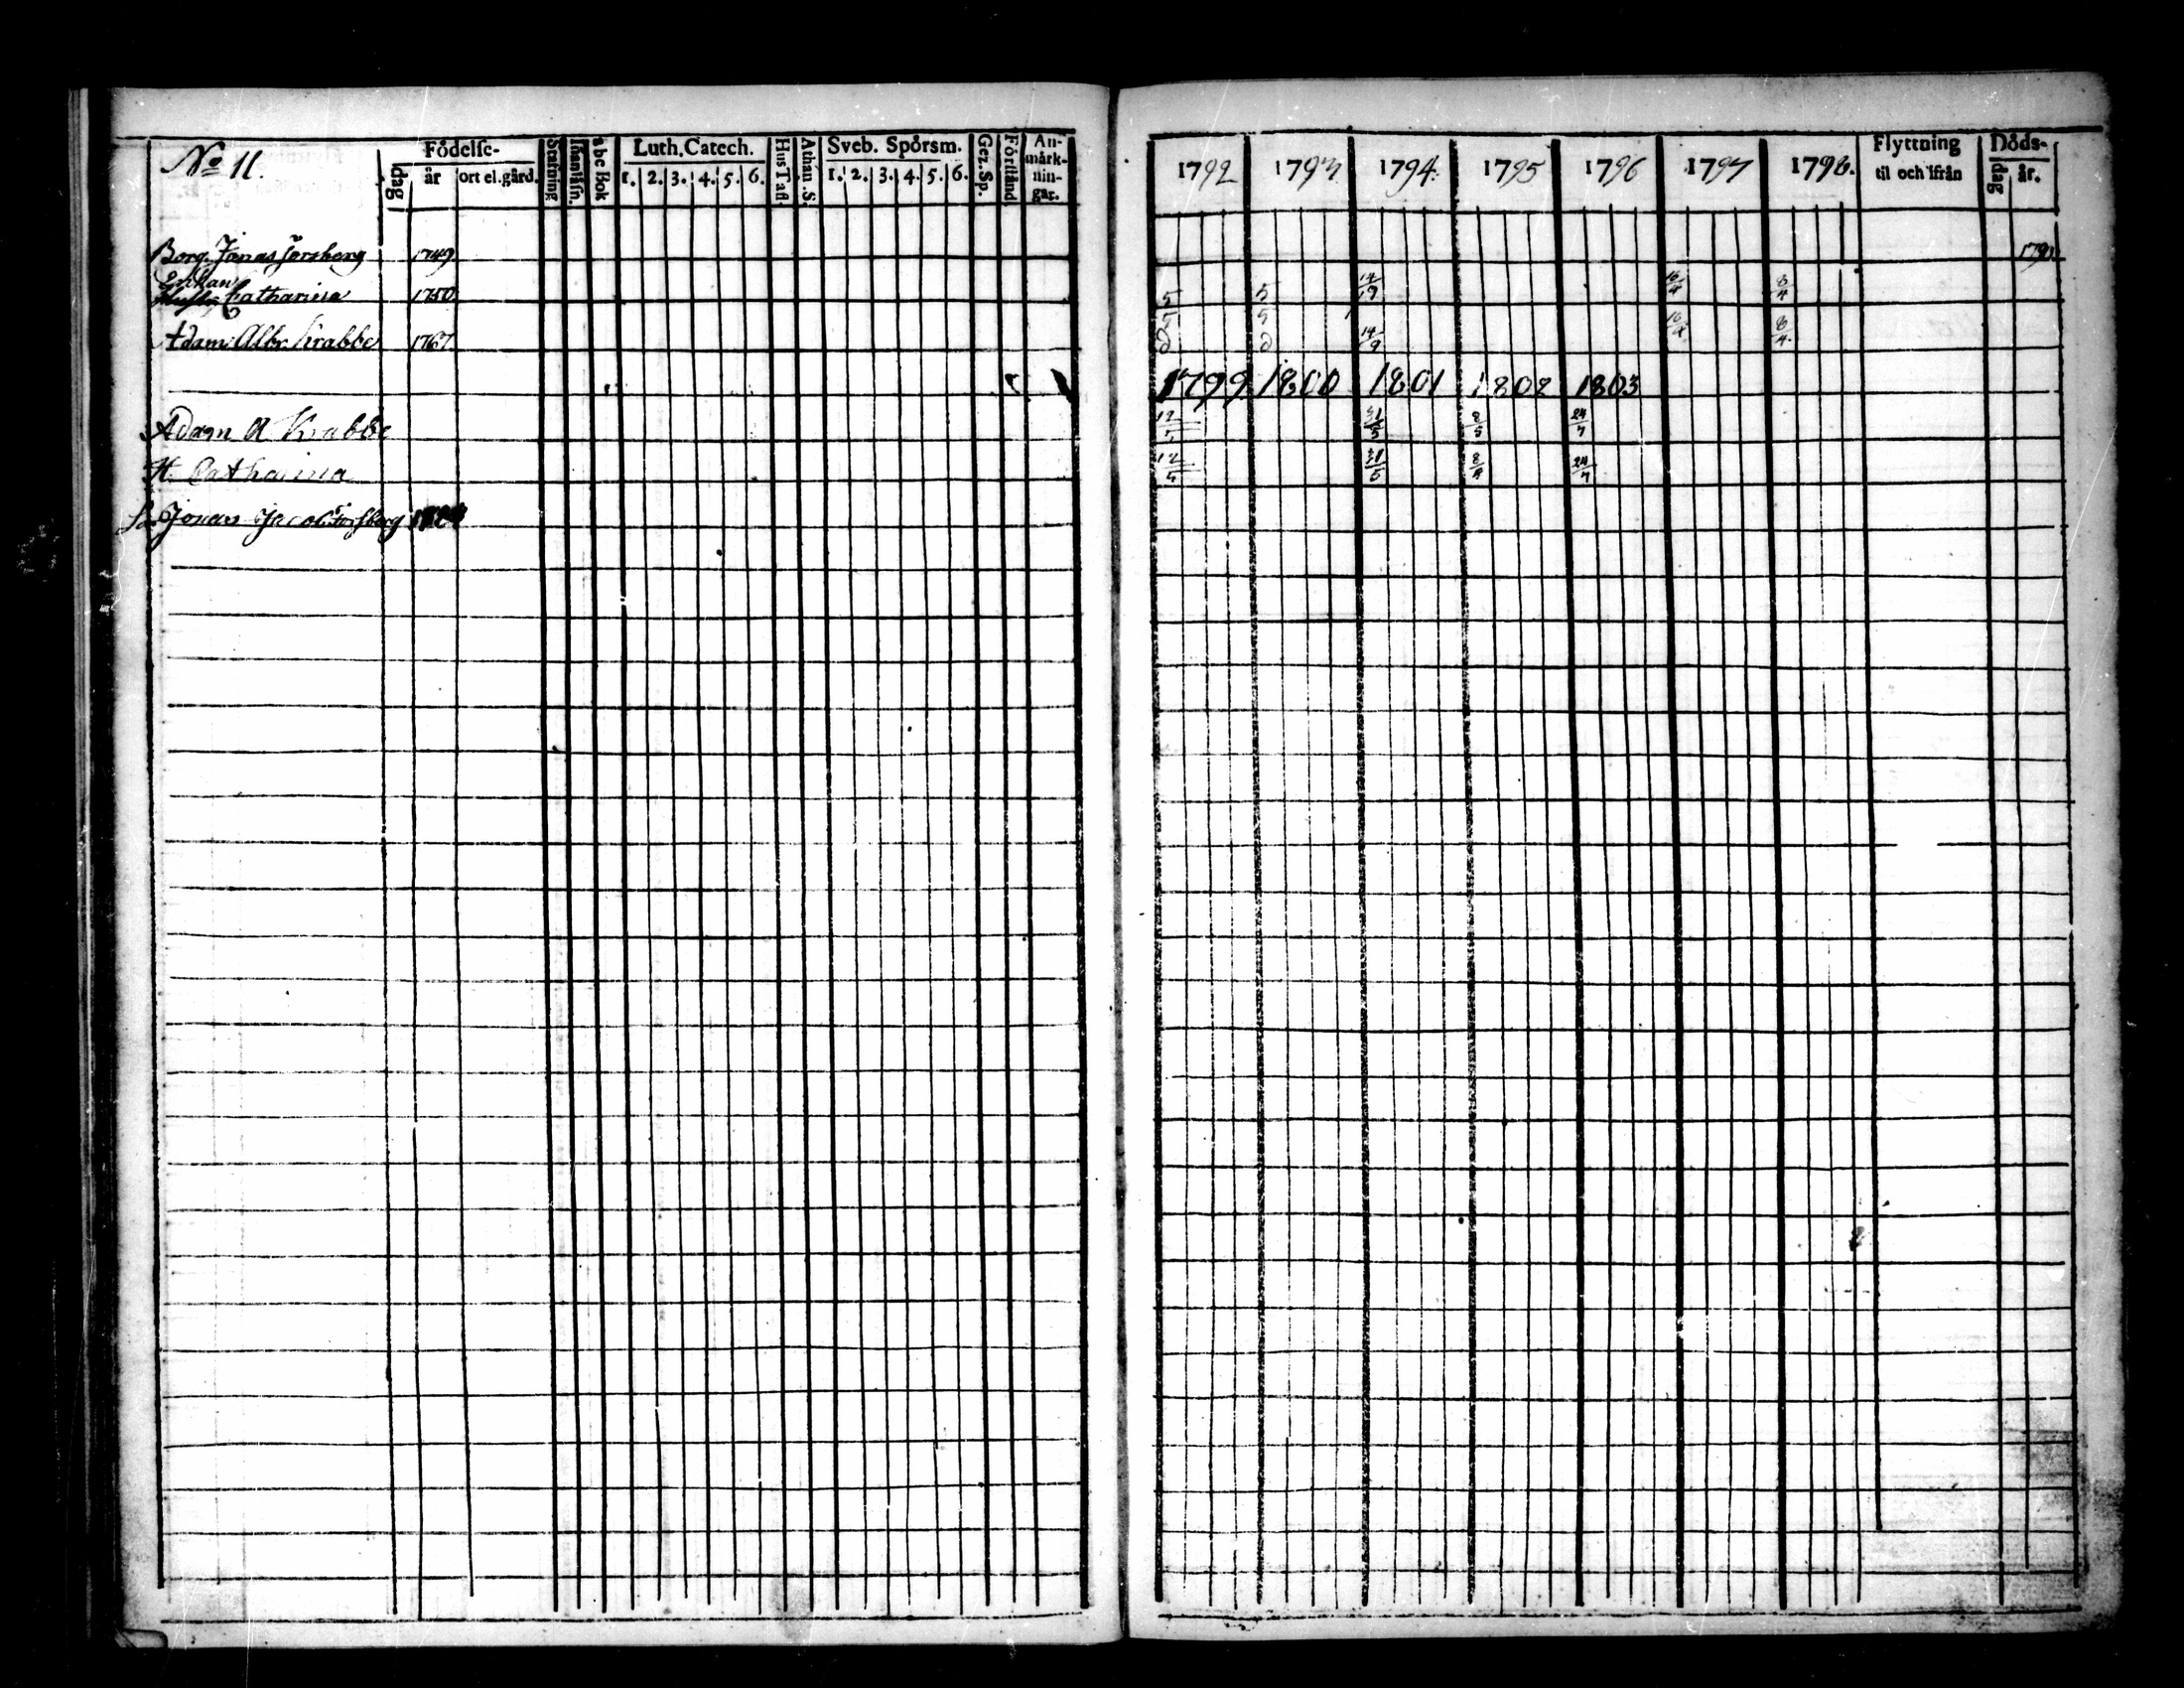 No 11.
Födelse-
dag
år
ort el. gård.
Stafning
Innanläsn.
abc Bok
Luth. Catech.
1. 2. 3. 4. 5. 6.
Hus Tafl.
Athan. S.
Sveb. Spörsm.
1. 2. 3. 4. 5. 6.
Gez. Sp.
Förstånd
An-
märk-
nin-
gar.
1792 1793 1794 1795 1796 1797 1798.
Flyttning
til och ifrån
Döds-
dag
år.
Borg. Jonas Forsberg 1749 1790
Enkan
Catharina 1750 5 5 14/9 16/4 8/4
Adam Albr. Krabbe 1767 14/9 16/4 8/4
1799 1800 1801 1802 1803
Adam A Krabbe 12/5 31/5 8/5 24/7
H. Catharina 12/5 31/5 8/5 24/7
Jonas Jacob Forsberg